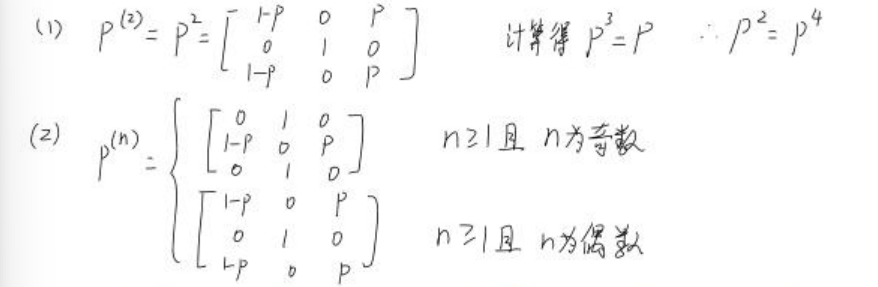 (1) P^(2) = P^2 = [ 1-P 0 P ; 0 1 0 ; 1-P 0 P ] 计算得 P^3 = P ∴ P^2 = P^4
(2) P^(n) = { [ 0 1 0 ; 1-P 0 P ; 0 1 0 ] n≥1且 n为奇数
[ 1-P 0 P ; 0 1 0 ; 1-P 0 P ] n≥1且 n为偶数